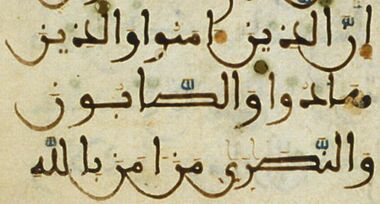 ان الذين امنوا والذين
هادوا والصابون
والنصرى من امن بالله